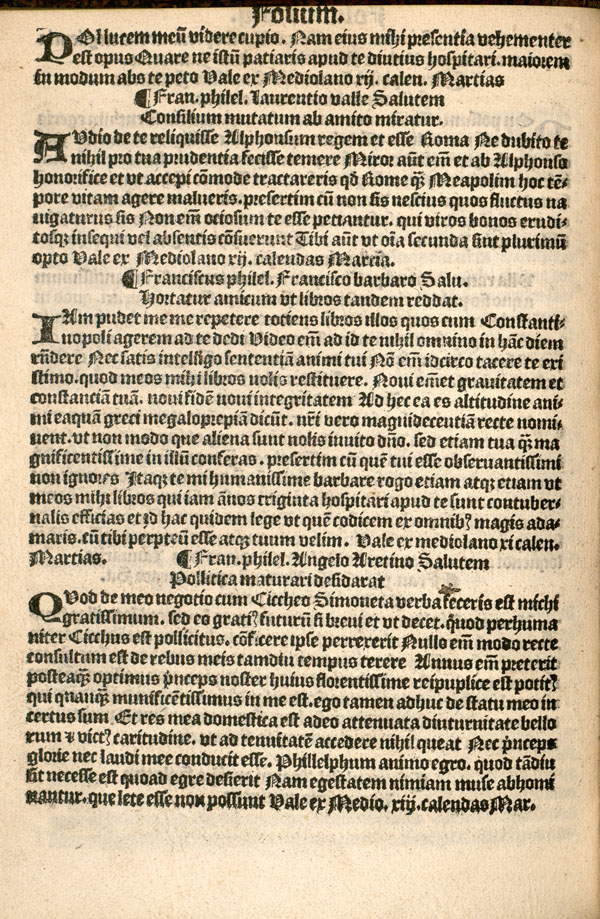 Folium.
POllucem meū videre cupio. Nam eius mihi presentia vehementer
est opus Quare ne istū patiaris apud te diutius hospitari. maiorem
in modum abs te peto Vale ex Mediolano xij. calen. Martias
¶ Fran. philel. Laurentio valle Salutem
Consilium mutatum ab amito miratur.
AUdio de te reliquisse Alphonsum regem et esse Rome Ne dubito te
nihil pro tua prudentia fecisse temere Miror aūt em̄ et ab Alphonso
honorifice et vt accepi cōmode tractareris qd Rome q̄ꝫ Neapolim hoc tē⸗
pore vitam agere malueris. presertim cū non sis nescius quos fluctus na
uigaturus sis Non em̄ ociosum te esse petiantur. qui viros bonos erudi⸗
tosqꝫ insequi vel absentis cōsuerunt Tibi aūt vt oīa secunda sint plurimū
opto Vale ex Mediolano xij. calendas Marcia.
¶ Franciscus philel. Francisco barbaro Salu.
Hortatur amicum vt libros tandem reddat.
IAm pudet me me repetere totiens libros illos quos cum Constanti⸗
nopoli agerem ad te dedi Video em̄ ad id te nihil omnino in hāc diem
rn̄dere Nec satis intelligo sententiam animi tui Nō em̄ idcirco tacere te exi
stimo. quod meos mihi libros nolis restituere. Noui em̄et grauitatem et
constanciā tuā. noui fidē noui integritatem Ad hec ea es altitudine ani⸗
mi eaquām greci megaloprepiām dicūt. nr̄i vero magnidecentiā recte nomi⸗
nent. vt non modo que aliena sunt nolis inuito dn̄o. sed etiam tua q̄ꝫ ma
gnificentissime in illū conferas. presertim cū quē tui esse obseruantissimi
non ignores Itaqꝫ te mi humanissime barbare rogo etiam atqꝫ etiam vt
meos mihi libros qui iam ānos triginta hospitari apud te sunt contuber⸗
nalis efficias et id hac quidem lege vt quē codicem ex omnibꝰ magis ada⸗
maris. cū tibi perpteū esse atqꝫ tuum velim. Vale ex mediolano xi calen.
Martias. ¶ Fran. philel. Angelo Aretino Salutem
Pollitica maturari desidarat
QUod de meo negotio cum Ciccheo Simoneta verba feceris est michi
gratissimum. sed eo gratiꝰ futurū si breui et vt decet. quod perhuma
niter Cicchus est pollicitus. cōficere ipse perrexerit Nullo em̄ modo recte
consultum est de rebus meis tamdiu tempus terere Annus em̄ preterit
posteaq̄ꝫ optimus prīnceps noster huius florentissime reipuplice est potitꝰ
qui quanq̄ꝫ munificētissimus in me est. ego tamen adhuc de statu meo in
certus sum Et res mea domestica est adeo attenuata diuturnitate bello
rum ⁊ victꝰ caritudine. vt ad tenuitatē accedere nihil queat Nec prīnceps
glorie nec laudi mee conducit esse. Phillelphum animo egro. quod tādiu
sit necesse est quoad egre desierit Nam egestatem nimiam muse abhomi
nantur. que lete esse non possunt Vale ex Medio. xiij. calendas Mar.